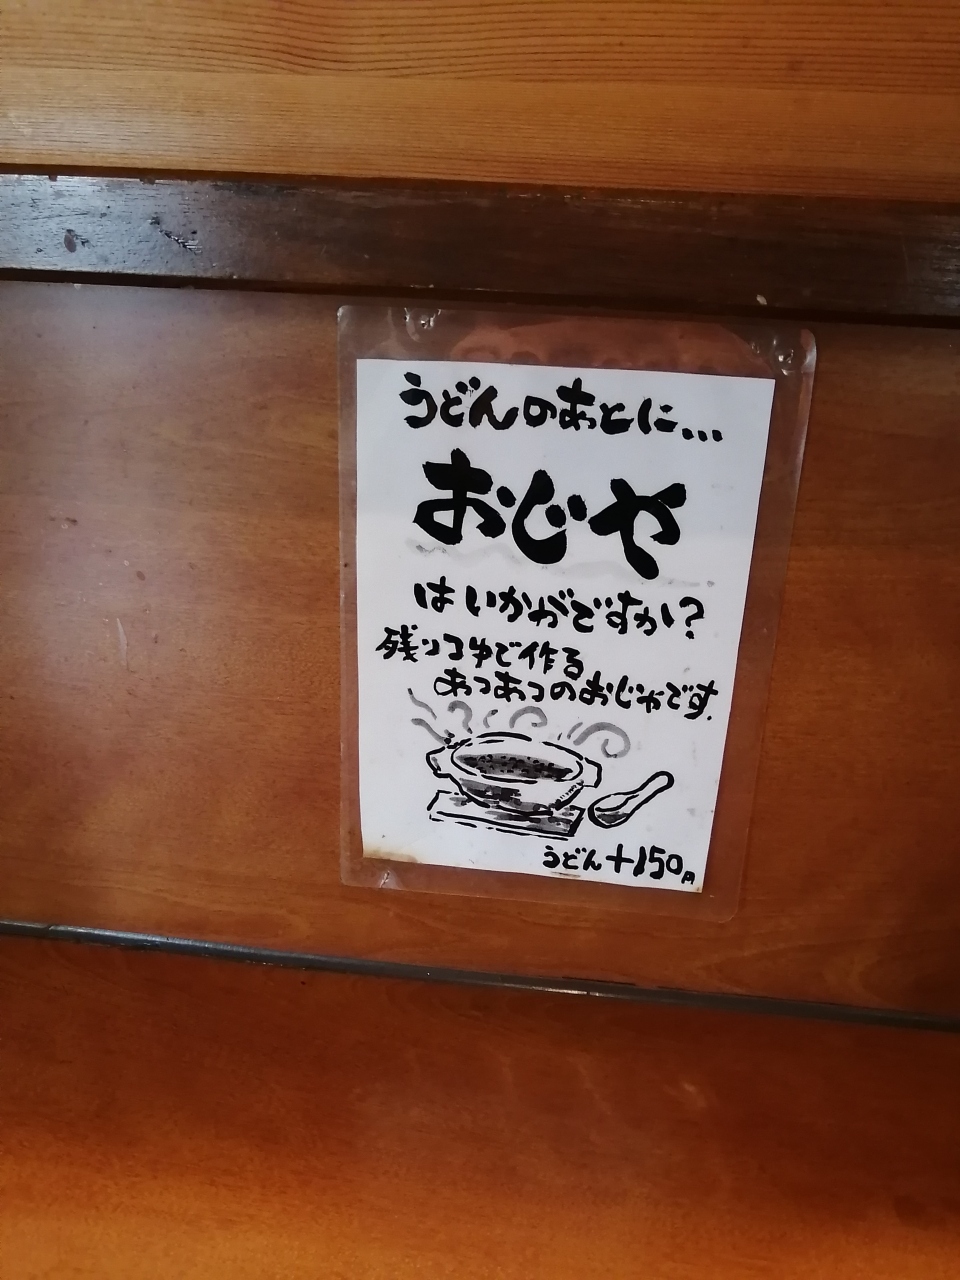 うどんのあとに...
おじや
はいかがですか?
残りつゆで作る
あつあつのおじやです.
うどん+150円